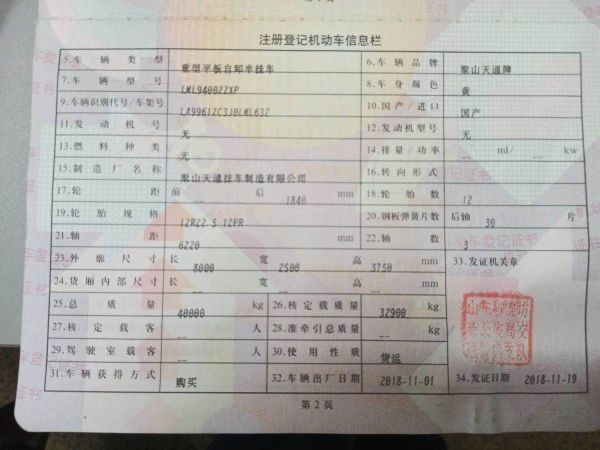 注册登记机动车信息栏
5.车辆类型 重型平板自卸半挂车 6.车辆品牌 梁山天通牌
7.车辆型号 LML9400ZZXP 8.车身颜色 黄
9.车辆识别代号/车架号 LA9961ZC3J0LML632 10.国产/进口 国产
11.发动机号 无 12.发动机型号 无
13.燃料种类 无 14.排量/功率 -- ml/ -- kw
15.制造厂名称 梁山天通挂车制造有限公司 16.转向形式
17.轮距 前 -- 后 1840 mm 18.轮胎数 12
19.轮胎规格 12R22.5 12PR 20.钢板弹簧片数 后轴 30 片
21.轴距 6220 mm 22.轴数 3
23.外廓尺寸 长 8000 宽 2500 高 3750 mm 33.发证机关章
24.货厢内部尺寸 长 -- 宽 -- 高 -- mm
25.总质量 40000 kg 26.核定载质量 32900 kg
27.核定载客 -- 人 28.准牵引总质量 -- kg
29.驾驶室载客 -- 人 30.使用性质 货运
31.车辆获得方式 购买 32.车辆出厂日期 2018-11-01 34.发证日期 2018-11-19
第2页